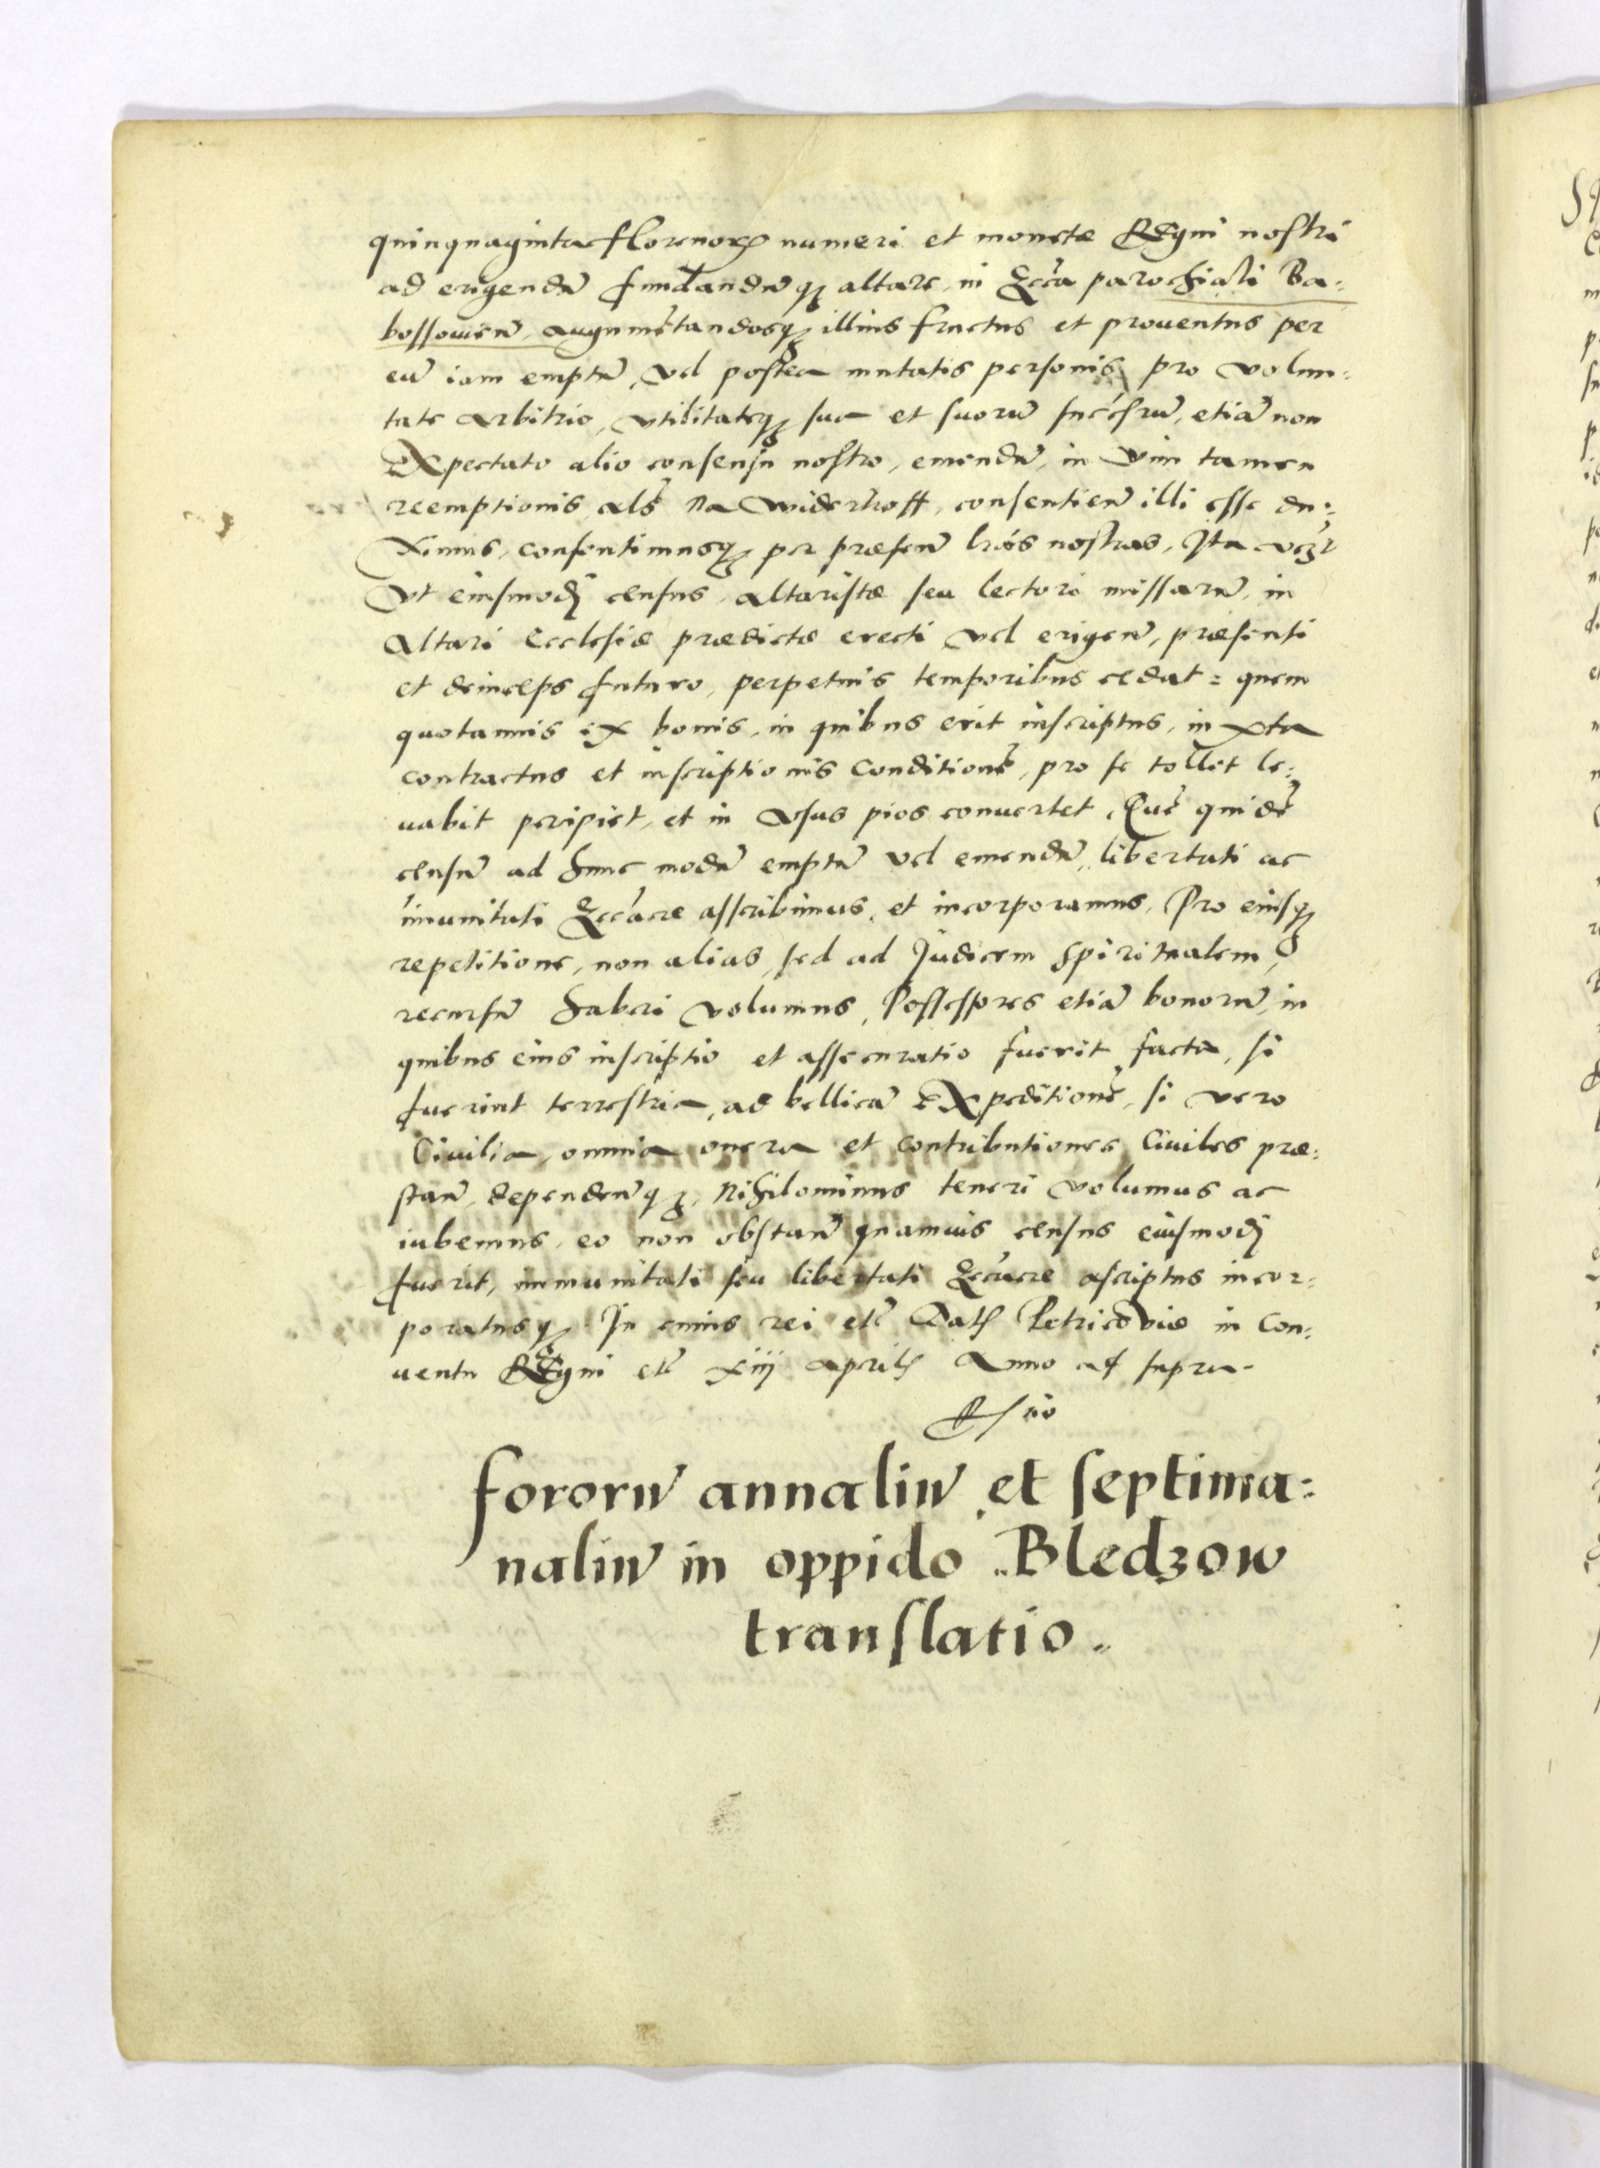 quinquaginta florenorꝝ numeri et monetæ Regni nostri
ad erigendũ fundandũqꝫ altare, in Eccľia parochiali Ba-
bossowieñ, augumẽtandosqꝫ illius fructus et prouentus per
eũ iam emptũ, vel postea mutatis personis, pro volun-
tate arbitrio, vtilitateqꝫ sua et suorũ succesrũ, etiã non
expectato alio consensu nostro, emendũ, in vim tamen
reemptionis als na widerkoff, consentieñ illi esse du-
ximus, consentimusqꝫ per præseñ lrãs nostras, Ita
vt eiusmodj census, altaristæ seu lectori missarũ, in
altari Ecclesiæ prædictæ erecti vel erigeñ, præsenti
et deinceps futuro, perpetuis temporibus cedat: quem
quotannis ex bonis, in quibus erit inscriptus, iuxta
contractus et inscriptionis conditionẽ, pro se tollet le-
uabit percipiet, et in vsus pios conuertet. Quẽ quidẽ
censũ ad hunc modũ emptũ vel emendũ, libertati ac
im̃unitati Eccľiacæ asscribimus, et incorporamus, Pro eiusqꝫ
repetitione, non alias, sed ad Judicem spiritualem,
recursũ haberi volumus, Possessores etiã bonorũ, in
quibus eius inscriptio et assecuratio fuerit facta, si
fuerint terrestria, ad bellicã expeditionẽ, si vero
Ciuilia, omnia onera et contributiones Ciuiles præ-
stañ, dependeñqꝫ, Nihilominus teneri volumus ac
iubemus, eo non obstañ quamuis census eiusmodj
fuerit, immunitati seu libertati Eccľiacæ ascriptus incor-
poratusqꝫ In cuius rei etc̃ Datꝭ Petricoviæ in Con-
uentu Regni etc̃ xiij aprilꝭ Anno qͣ supra.
Rſio
fororũ annaliũ et septima-
naliũ in oppido Bledzow
translatio.